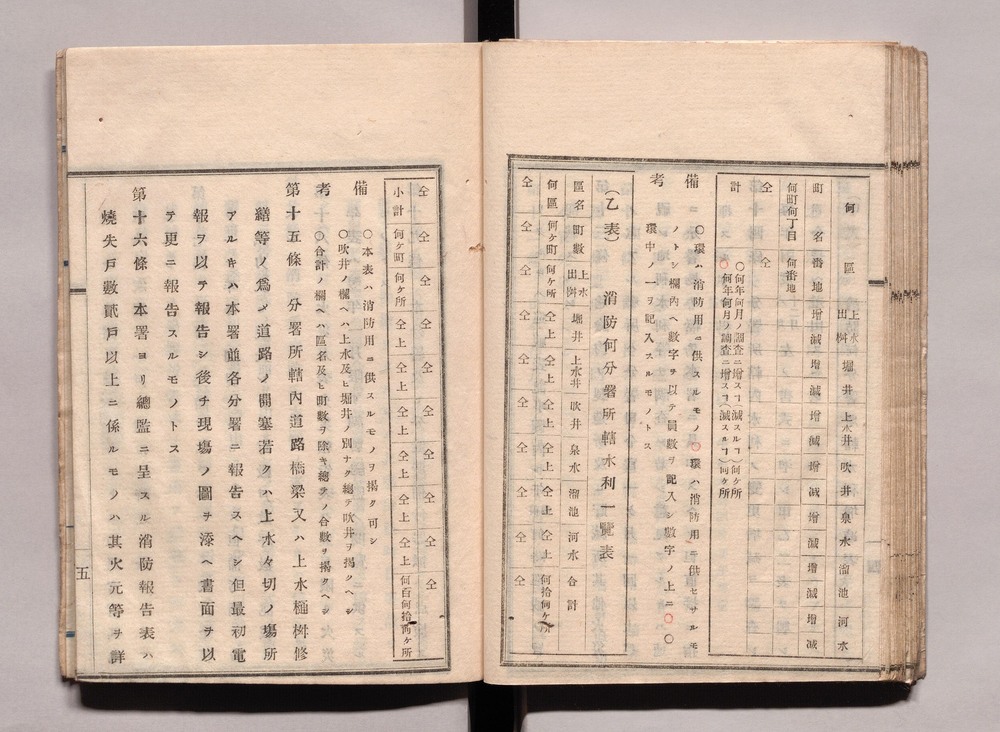 何區
上水出桝 堀井 上水井 吹井 泉水 溜池 河水
町名 番地 增減 增減 增減 增減 增減 增減 增減
何町何丁目 何番地
仝 仝
計
○何年何月ノ調査ニ增スヿ(減スルヿ)何ケ所
○何年何月ノ調査ニ增スヿ(減スルヿ)何ケ所
備考
○環ハ消防用ニ供スルモノ○環ハ消防用ニ供セサルモ
ノトシ欄內ヘ數字ヲ以テ員數ヲ記入シ數字ノ上ニ○○
環中ノ一ヲ記入スルモノトス
(乙表) 消防何分署所轄水利一覽表
區名 町數 上水出桝 堀井 上水井 吹井 泉水 溜池 河水 合計
何區 何ケ町 何ケ所 仝上 仝上 仝上 仝上 仝上 仝上 何拾何ケ所
仝 仝 仝 仝 仝 仝 仝 仝 仝 仝
仝 仝 仝 仝 仝 仝 仝 仝 仝 仝
小計 何ケ町 何ケ所 仝上 仝上 仝上 仝上 仝上 仝上 何百何拾何ケ所
備考
○本表ハ消防用ニ供スルモノヲ揭ク可シ
○吹井ノ欄ヘハ上水及ヒ堀井ノ別ナク總テ吹井ヲ揭クヘシ
○合計ノ欄ヘハ區名及ヒ町數ヲ除キ總テノ合數ヲ揭クヘシ
第十五條 分署所轄內道路橋梁又ハ上水樋桝修
繕等ノ爲メ道路ノ開塞若クハ上水々切ノ塲所
アルキハ本署並各分署ニ報告スヘシ但最初電
報ヲ以テ報告シ後チ現塲ノ圖ヲ添ヘ書面ヲ以
テ更ニ報告スルモノトス
第十六條 本署ヨリ總監ニ呈スル消防報告表ハ
燒失戶數貳戶以上ニ係ルモノハ其火元等ヲ詳
五